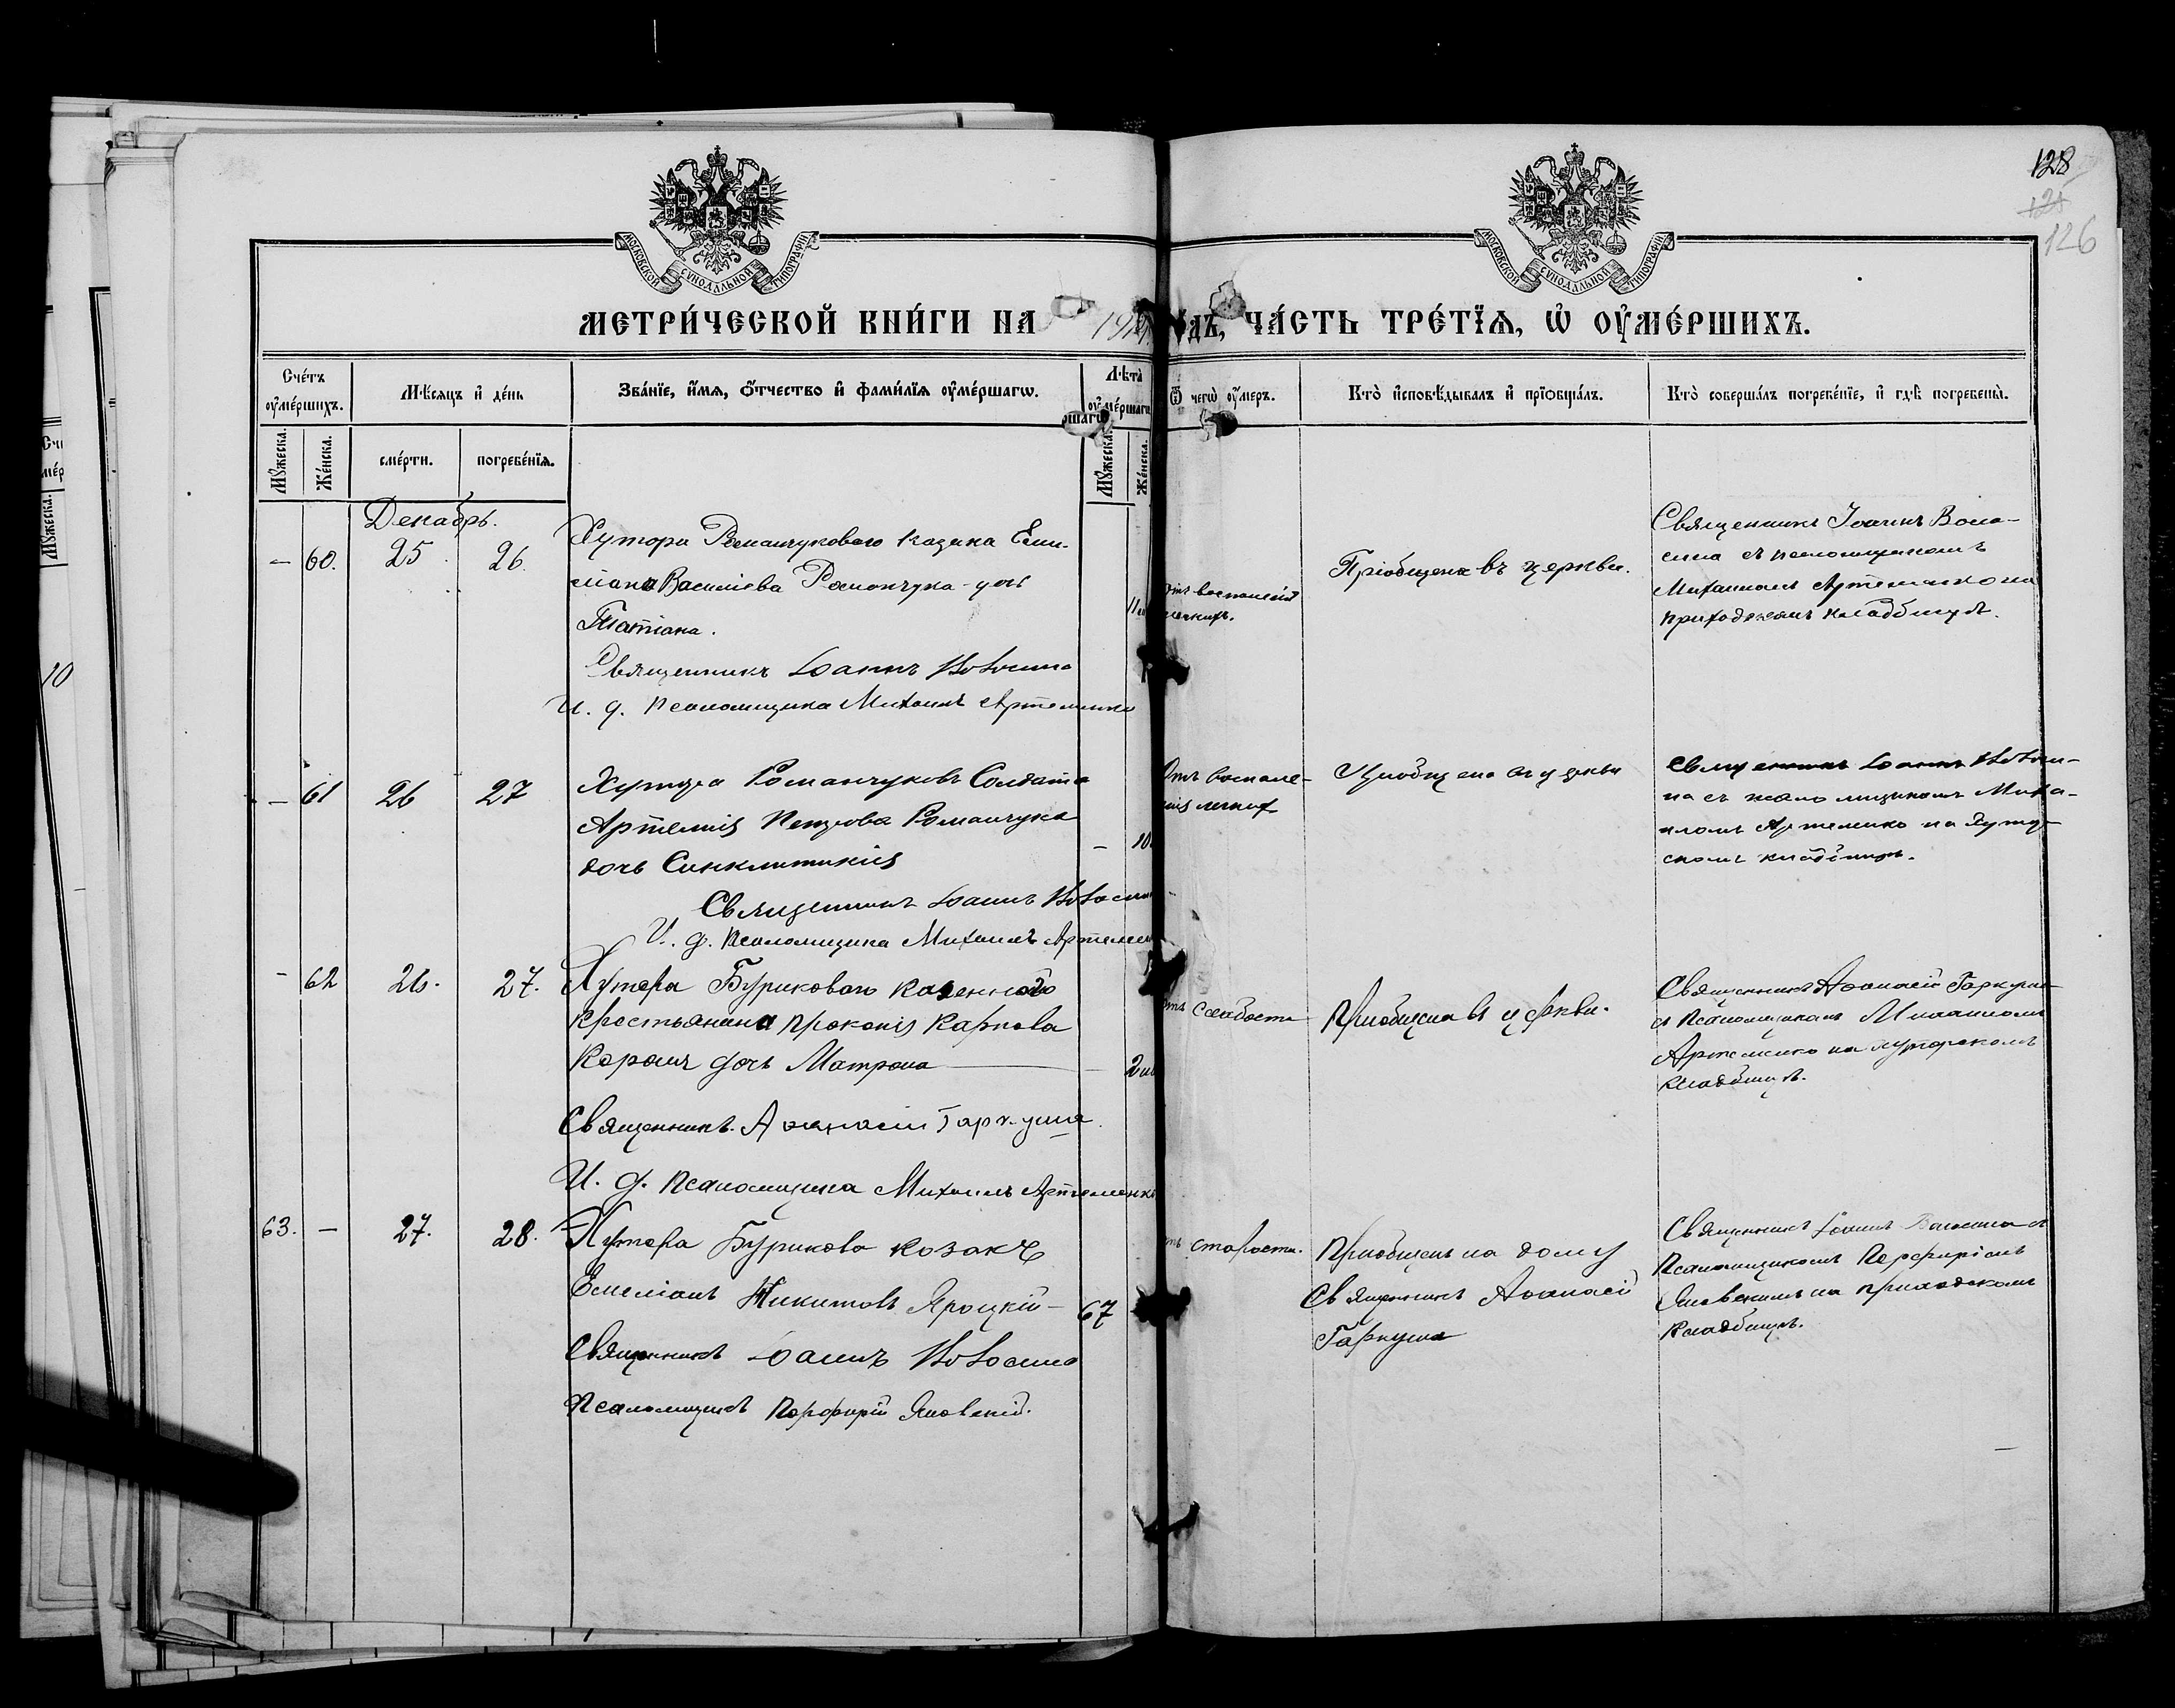 128
121
126
МОСКОВСКОЙ СѴНОДАЛЬНОЙ ТИПОГРАФІИ
МОСКОВСКОЙ СѴНОДАЛЬНОЙ ТИПОГРАФІИ
МЕТРИ́ЧЕСКОЙ КНИ́ГИ НА
ЧА́СТЬ ТРЕ́ТЇѦ, Ѡ҆ ОУ҆МЕ́РШИХЪ.
Сче́тъ оу҆ме́ршихъ.
Мѣ́сяцъ и҆ де́нь
Зва́нїе, и҆́мя, ѻ҆́тчество и҆ фами́лїя оу҆ме́ршагѡ.
Лѣ́та оу҆ме́ршагѡ
Ѿ чегѡ̀ оу҆́меръ.
Кто̀ и҆сповѣ́дывалъ и҆ прїѡбща́лъ.
Кто̀ соверша́лъ погребе́нїе, и҆ гдѣ̀ погребены̀.
Мꙋ́жеска.
Же́нска.
сме́рти.
погребе́нїя.
Мꙋ́жеска.
Же́нска.
Декабрь.
— 60. 25. 26.
Хутора Романчукового казака Еми-
ліана Василіева Романчука – дочь
Татіана.
Священникъ Іоаннъ Волосина
И. д. Псаломщика Михаилъ Артеменко
легкихъ.
Пріобщена въ церкви.
Священникъ Іоаннъ Воло-
сина съ псаломщикомъ
Михаиломъ Артеменко на
приходскомъ кладбищѣ.
— 61 26 27
Хутора Романчуковъ Солдата
Артемія Петрова Романчука
дочь Синклитикія
— 10
Священникъ Іоаннъ Волосина
И. д. Псаломщика Михаилъ Артемен
Отъ воспале-
нія легкихъ
Пріобщена въ церкви
Священникъ Іоаннъ Волоси-
на съ псаломщикомъ Миха-
иломъ Артеменко на Хутор-
скомъ кладбищѣ.
– 62 26. 27.
Хутора Бурикового казенного
крестьянина Прокопія Карпова
Корошъ дочь Матрона — 2
Священникъ Аѳанасій Гаркуша.
И. д. Псаломщика Михаилъ Артеменко
слабости
Пріобщена въ церкви.
Священникъ Аѳанасій Гаркуша
съ Псаломщикомъ Михаиломъ
Артеменко на хуторскомъ
кладбищѣ.
63. — 27. 28.
Хутора Бурикова козакъ
Емеліанъ Никитовъ Яроцкій – 67
Священникъ Іоаннъ Волосина
Псаломщикъ Порфирій Яновскій.
старости.
Пріобщенъ на дому
Священникъ Аѳанасій
Гаркуша
Священникъ Іоаннъ Волосина съ
Псаломщикомъ Порфиріемъ
Яновскимъ на приходскомъ
кладбищѣ.
10